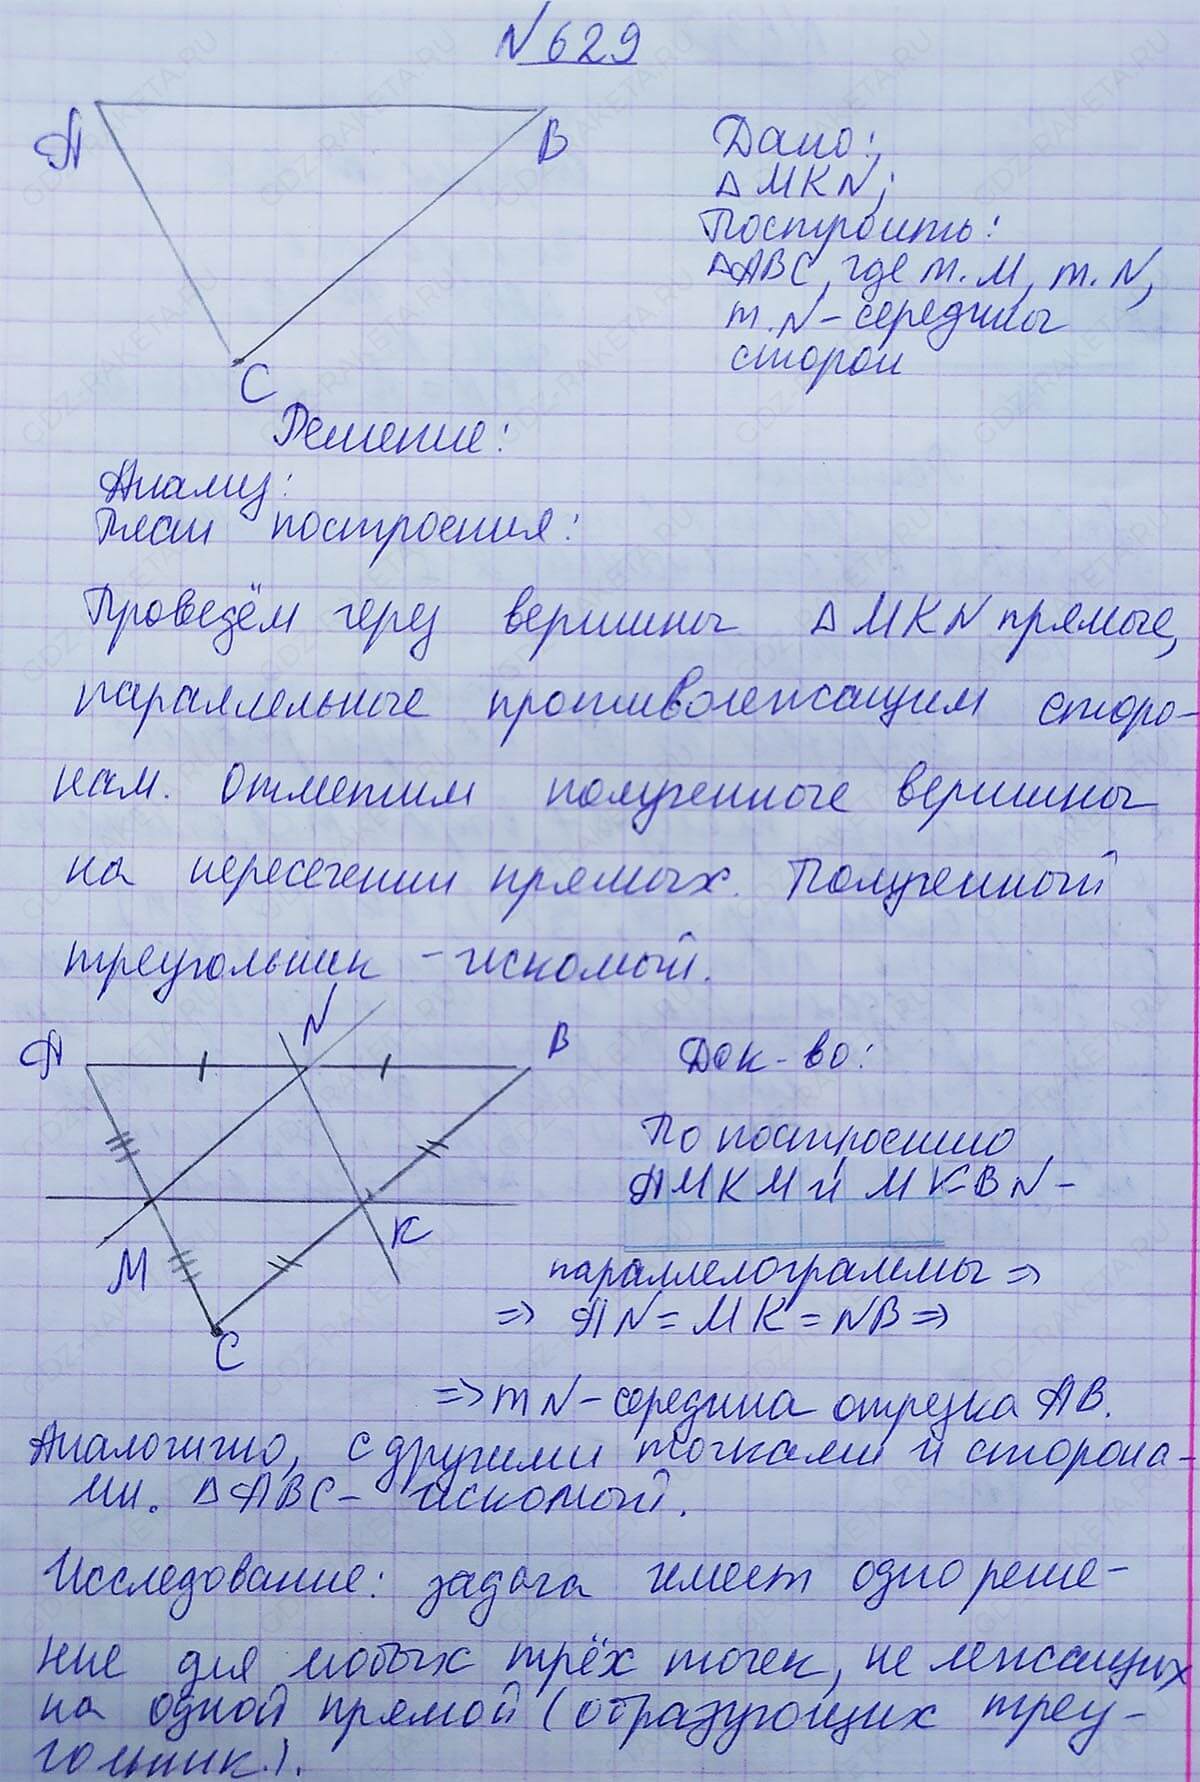 №629
A
B
C
Дано:,
△MKN;
Построить:
△ABC, где т. M, т. N,
т. N - середины
сторон
Решение:
Анализ:
План построения:
Проведём через вершины △ MKN прямые,
параллельные противолежащим сторо-
нам. Отметим полученные вершины
на пересечении прямых. Полученный
треугольник - искомый.
A
N
B
M
K
C
Док-во:
По построению
AMKM и MKBN -
параллелограммы ⇒
⇒ AN = MK = NB ⇒
⇒ т N - середина отрезка AB.
Аналогично, с другими точками и сторона-
ми. △ABC - искомый.
Исследование: задача имеет одно реше-
ние для любых трёх точек, не лежащих
на одной прямой (образующих треу-
гольник.).
GDZ-RAKETA.RU